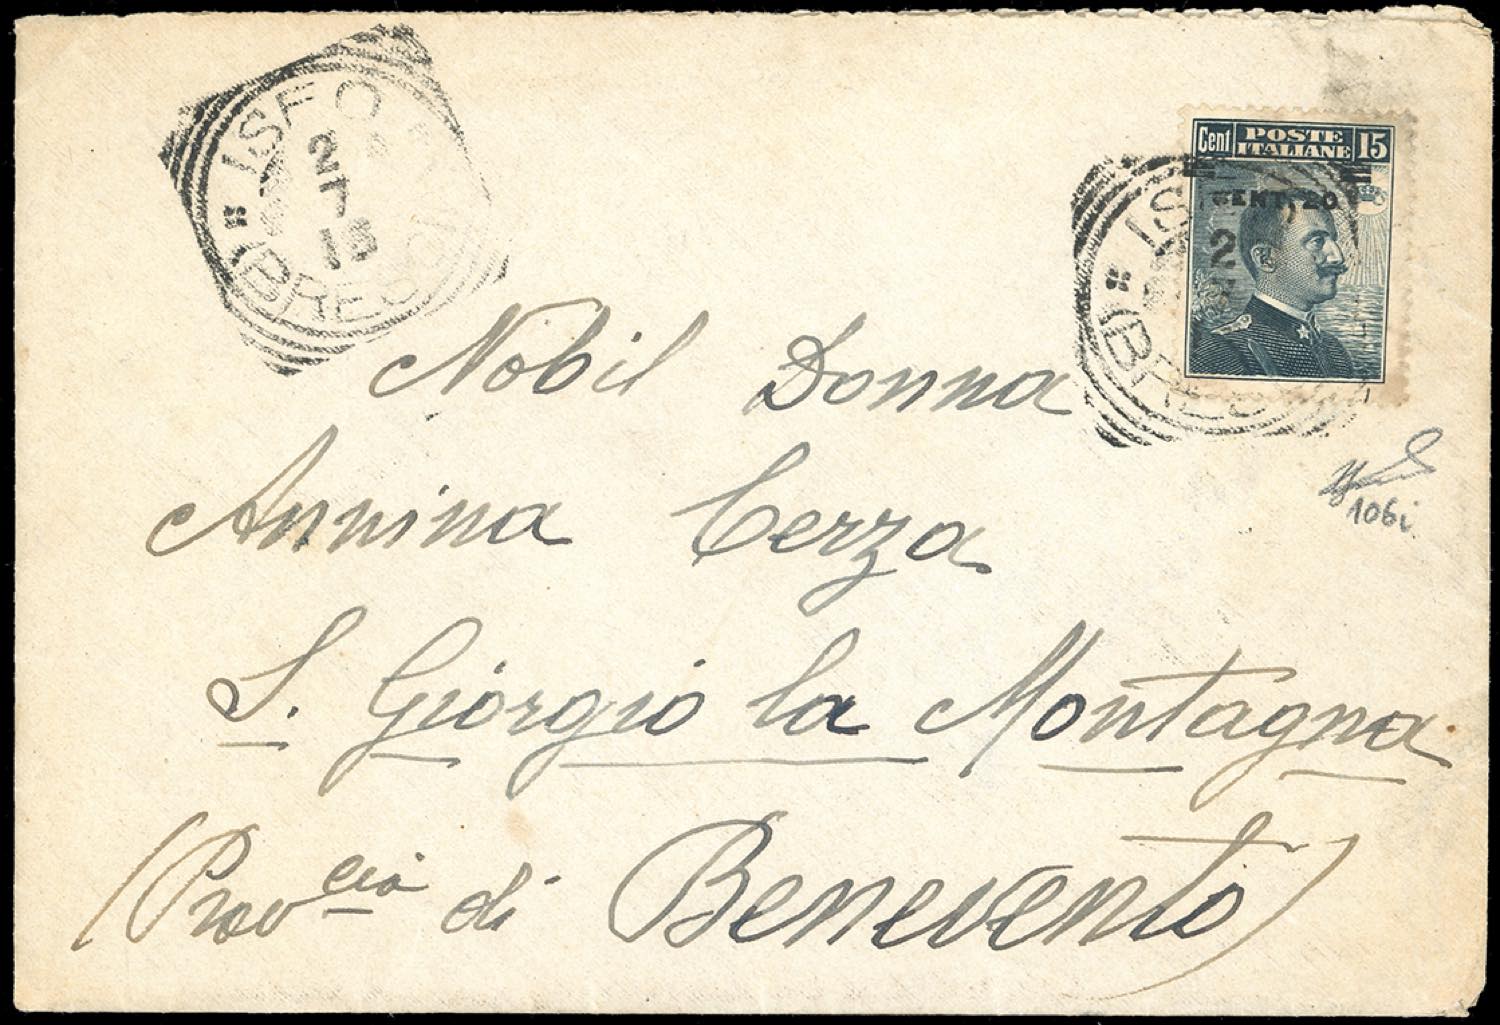 ISEO
2
7
(BRESC
Cent POSTE ITALIANE 15
CENT. 20
2
Nobil Donna
Annina Cerza
S. Giorgio la Montagna
(Prov cia di Benevento)
106i